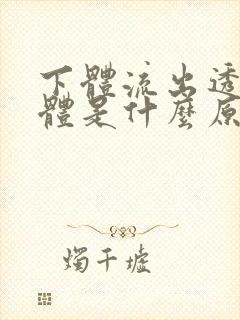 下體流出透
體是什麼原
燭千墟